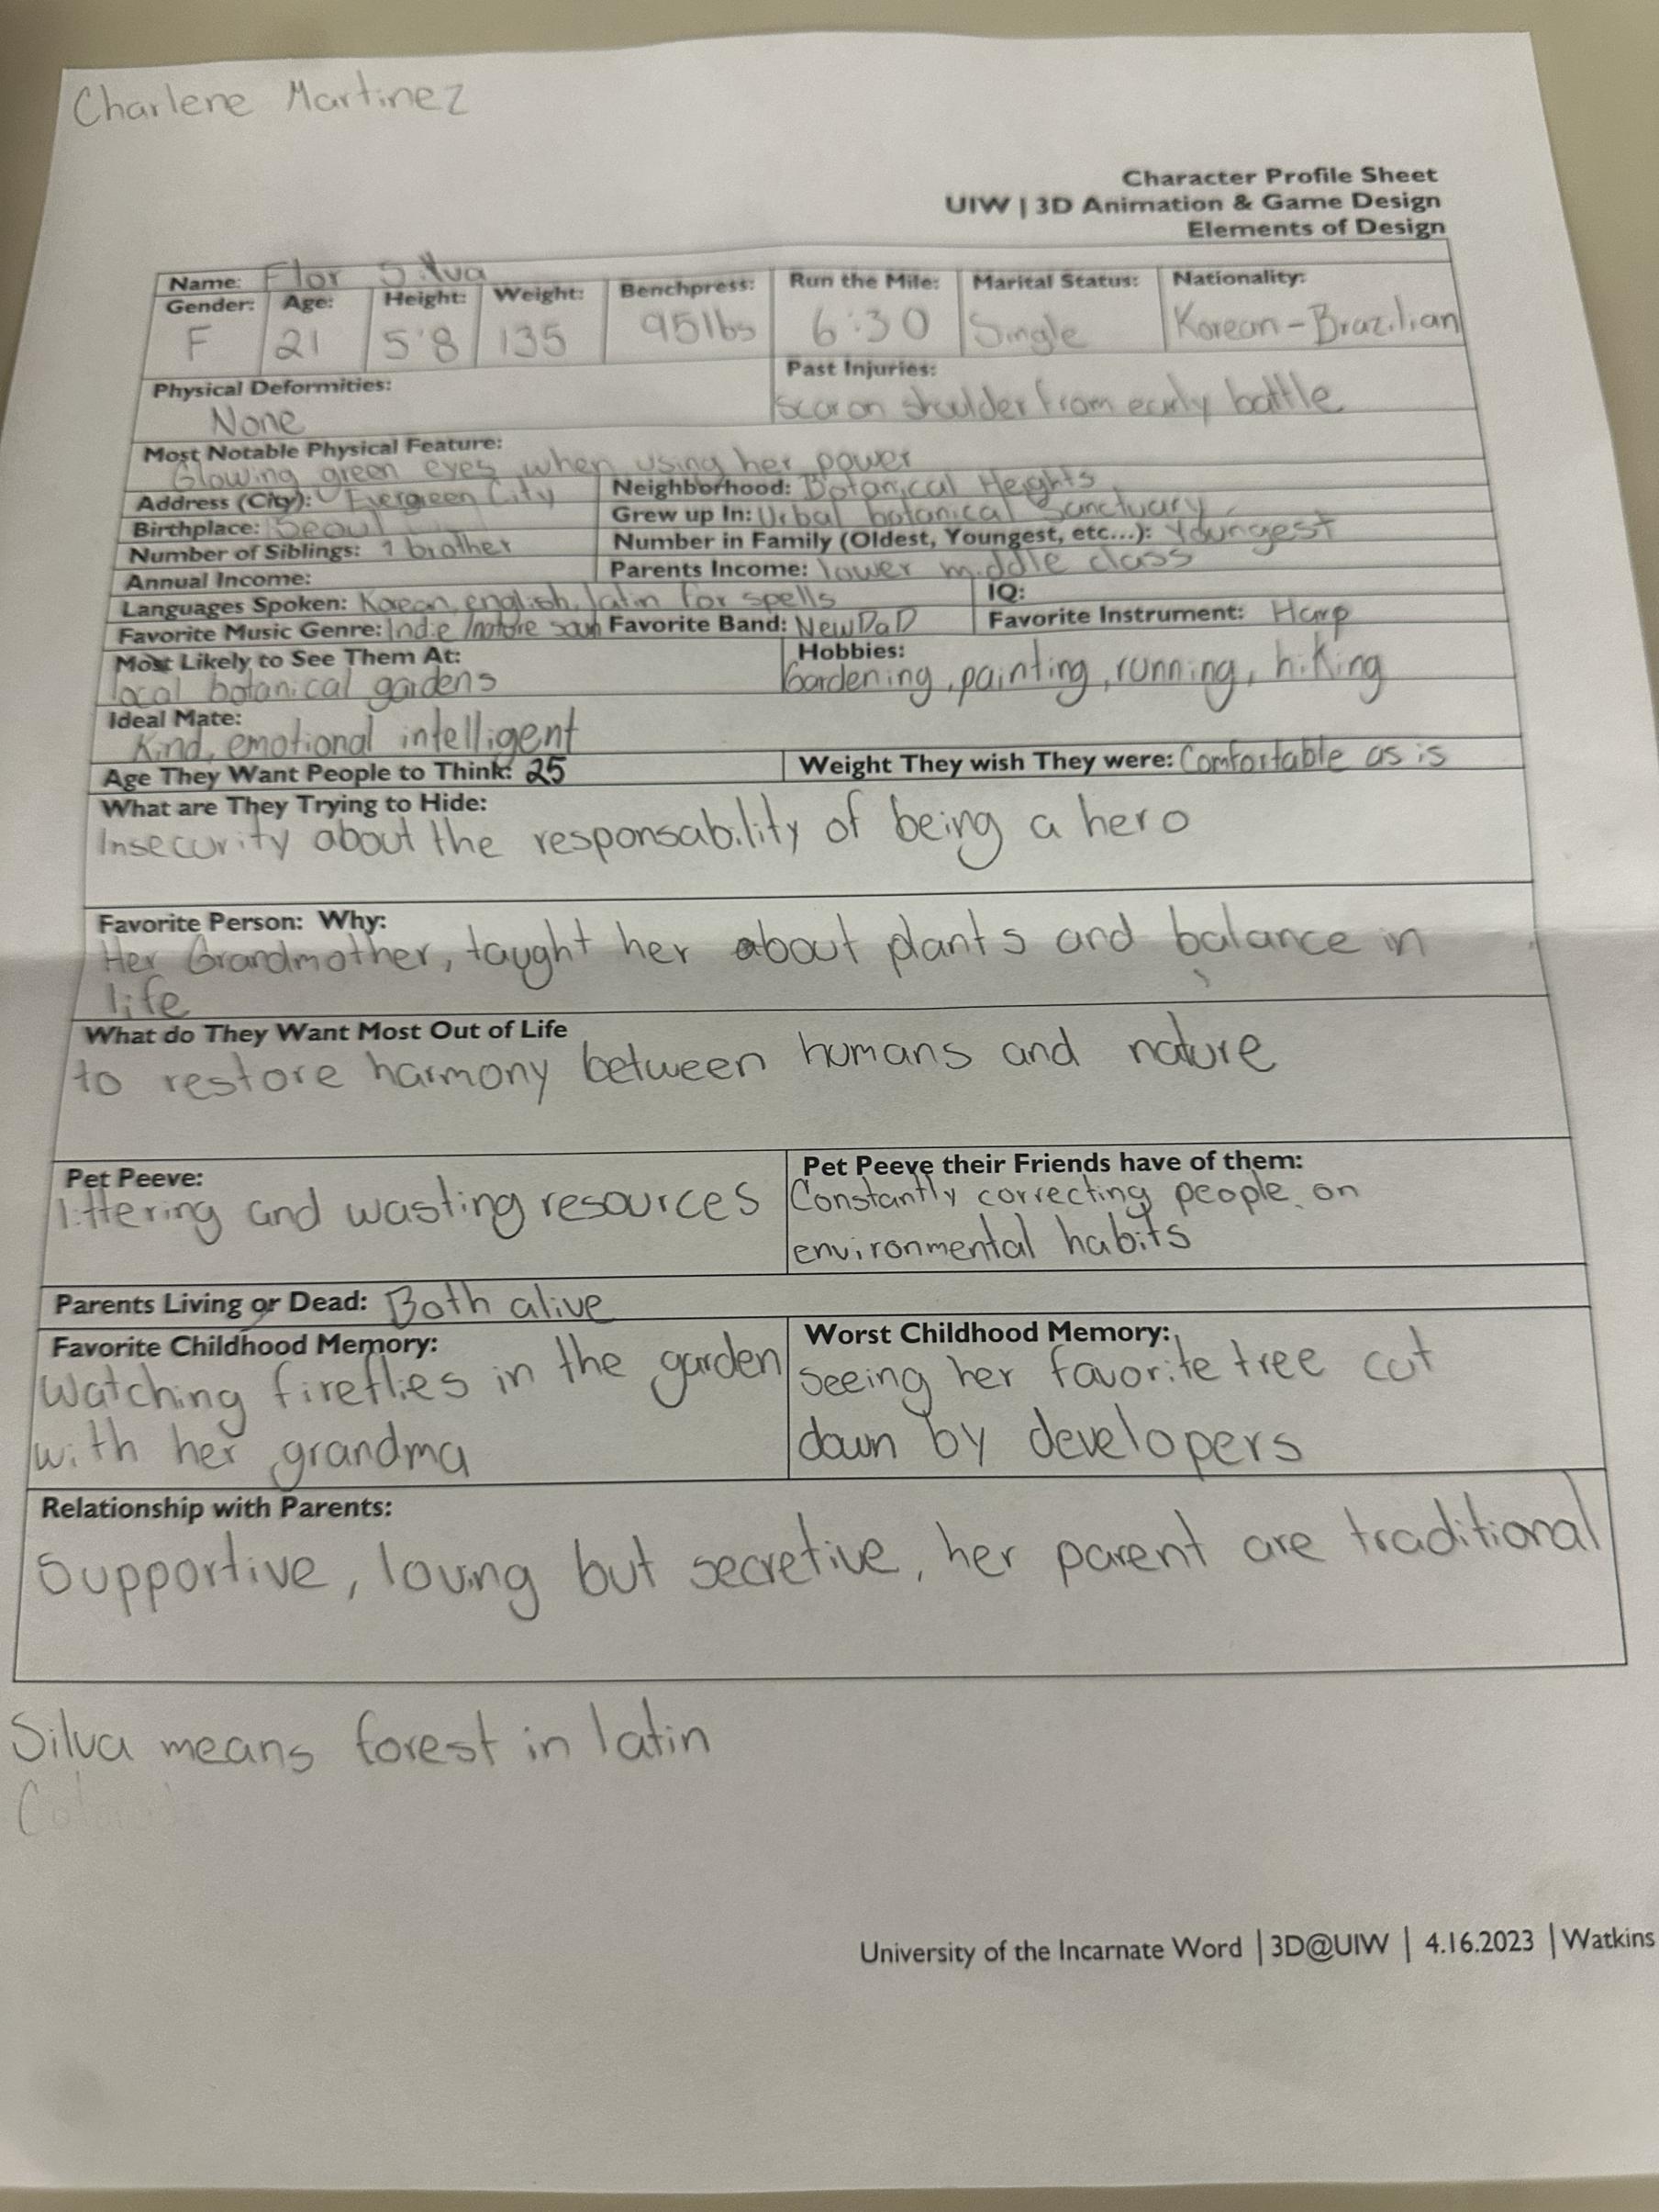 Charlene Martinez
Character Profile Sheet
UIW | 3D Animation & Game Design
Elements of Design
Name: Flor Silva
Gender: F Age: 21 Height: 5'8 Weight: 135 Benchpress: 95lbs Run the Mile: 6:30 Marital Status: Single Nationality: Korean-Brazilian
Physical Deformities: None
Past Injuries: scar on shoulder from early battle
Most Notable Physical Feature:
Glowing green eyes when using her power
Address (City): Evergreen City Neighborhood: Botanical Heights
Birthplace: Seoul Grew up In: Urbal botanical Sanctuary
Number of Siblings: 1 brother Number in Family (Oldest, Youngest, etc...): Youngest
Annual Income: Parents Income: lower middle class
Languages Spoken: Korean, english, latin for spells IQ:
Favorite Music Genre: Indie/nature soun Favorite Band: NewDaD Favorite Instrument: Harp
Most Likely to See Them At:
local botanical gardens
Hobbies:
Gardening, painting, running, hiking
Ideal Mate:
Kind, emotional intelligent
Age They Want People to Think: 25 Weight They wish They were: Comfortable as is
What are They Trying to Hide:
Insecurity about the responsability of being a hero
Favorite Person: Why:
Her Grandmother, taught her about plants and balance in
life
What do They Want Most Out of Life
to restore harmony between humans and nature
Pet Peeve:
littering and wasting resources
Pet Peeve their Friends have of them:
Constantly correcting people on
environmental habits
Parents Living or Dead: Both alive
Favorite Childhood Memory:
Watching fireflies in the garden
with her grandma
Worst Childhood Memory:
seeing her favorite tree cut
down by developers
Relationship with Parents:
Supportive, loving but secretive, her parent are traditional
Silva means forest in latin
University of the Incarnate Word | 3D@UIW | 4.16.2023 | Watkins